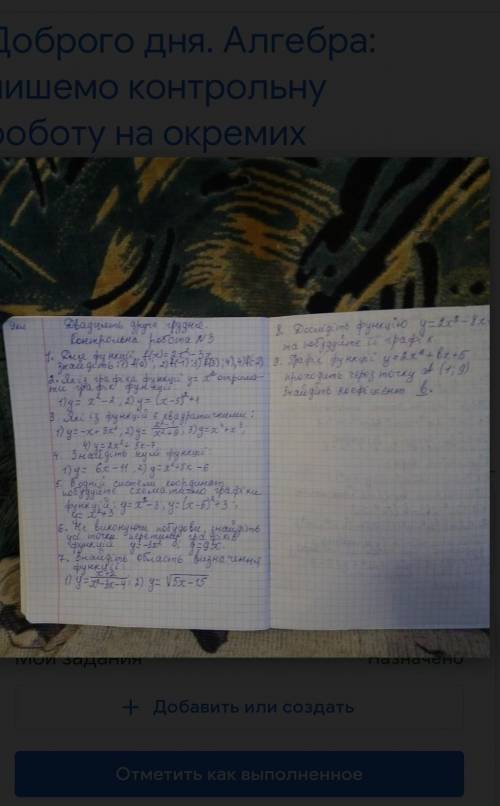 Доброго дня. Алгебра:
пишемо контрольну
роботу на окремих
9кл Двадцять друге грудня.
Контрольна робота №3
1. Дано функції
знайдіть:
2. Як із графіка функції y=x² отрима-
ти графік функції:
1) y= x²-2, 2) y=
3. Які із функцій є квадратичними:
1) y=-x+3x², 2) y= 3) y=x²+x³,
4) y=2x²+3x-7
4. Знайдіть нулі функції:
1) y= 6x-11, 2) y=
5. В одній системі координат
побудуйте схематично графіки
функцій: y=x²-3, y=(x-5)²+3
6. Не виконуючи побудови, знайдіть
усі точки перетину графіків
функцій y= і y=9x.
7. Знайдіть область визначення
функції
1) y= 2) y= √5x-15
8. Дослідіть функцію y=2x²-8x
та побудуйте її графік
9. Графік функції y=2x²+bx+5
проходить через точку A(1; 9)
Знайдіть коефіцієнт b.
Мои задания
Назначено
+ Добавить или создать
Отметить как выполненное